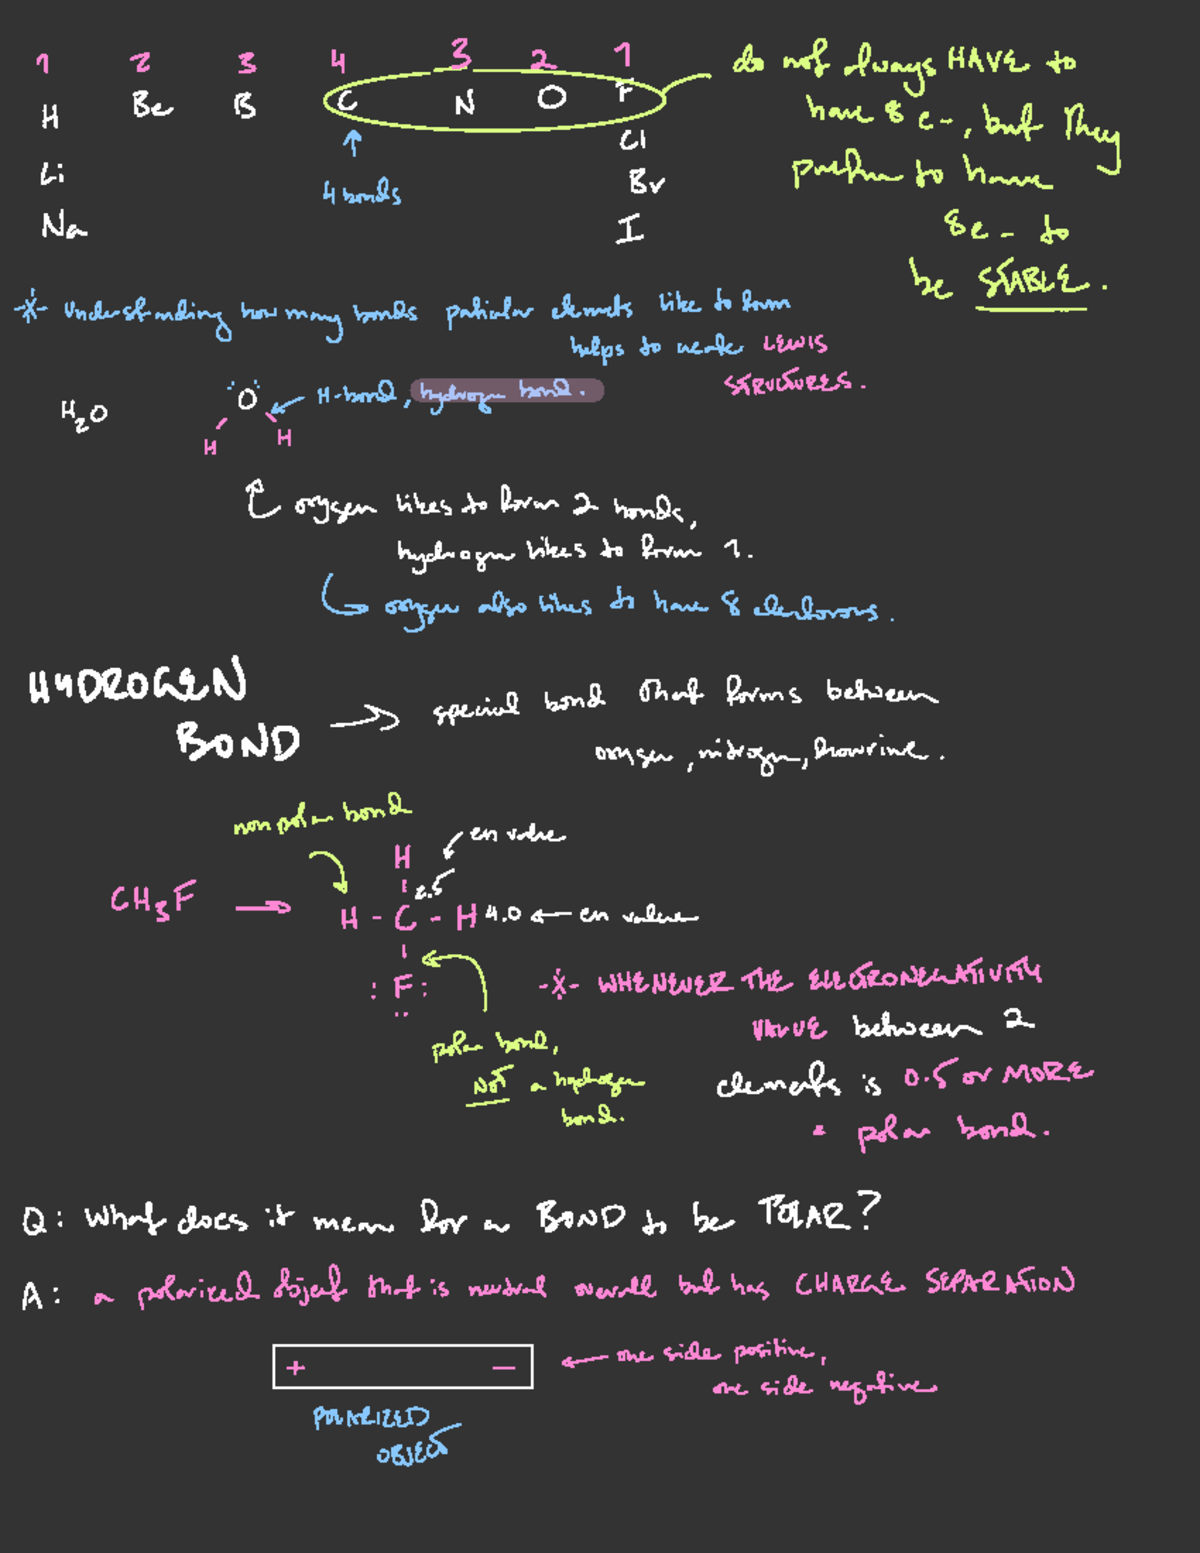 1 2 3 4 3 2 1
H Be B C N O F
Li Cl
Na Br
I
4 bonds
do not always HAVE to
have 8 e-, but They
prefer to have
8e- to
be STABLE.
-X- Understanding how many bonds paticular elements like to form
helps to make LEWIS
STRUCTURES.
H2O
:O:
H H
H-bond, hydrogen bond.
oxygen likes to form 2 bonds,
hydrogen likes to form 1.
oxygen also likes to have 8 electorons.
HYDROGEN
BOND → special bond that forms between
oxygen, nitrogen, flourine.
non polar bond
en value
H
2.5
CH3F → H - C - H 4.0 ← en value
: F :
..
polar bond,
NOT a hydrogen
bond.
-X- WHENEVER THE ELECTRONEGATIVITY
VALUE between 2
elements is 0.5 or MORE
= polar bond.
Q: What does it mean for a BOND to be POLAR?
A: a polarized object that is neutral overall but has CHARGE SEPARATION
+ —
← one side positive,
one side negative
POLARIZED
OBJECT